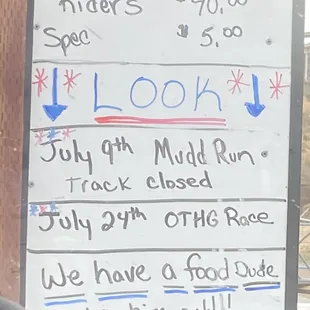 Riders $40.00
Spec $5.00
LOOK
July 9th Mudd Run
Track closed
July 24th OTHG Race
We have a food Dude
him